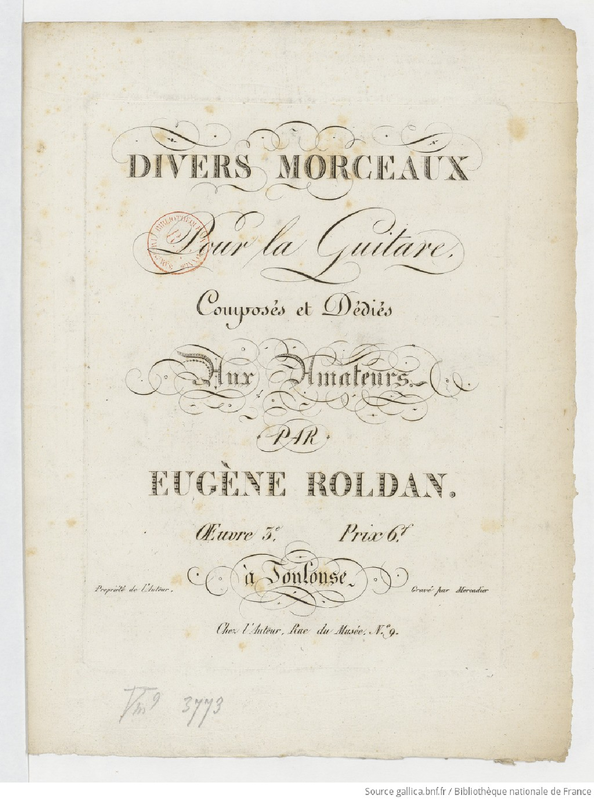 DIVERS MORCEAUX
Pour la Guitare.
Composés et Dédiés
Aux Amateurs.
PAR
EUGÈNE ROLDAN.
Œuvre 3.e Prix 6.f
à Toulouse
Propriété de l'Auteur. Gravé par Mercadier
Chez l'Auteur, Rue du Musée, N.o 9.
Vm9 3773
Source gallica.bnf.fr / Bibliothèque nationale de France